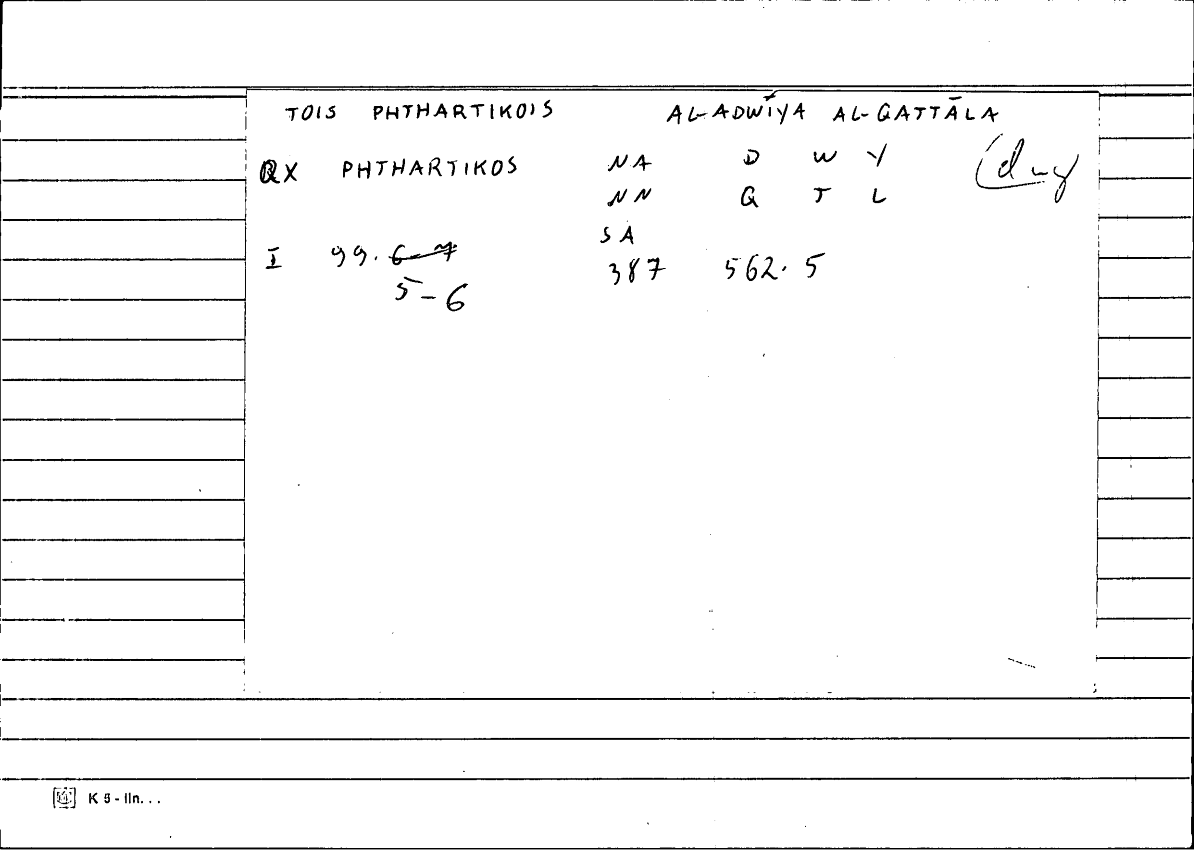 TOIS PHTHARTIKOIS AL-ADWĪYA AL-QATTĀLA
QX PHTHARTIKOS NA D W Y (dwy
NN Q T L
SA
I 99. 6-7 387 562. 5
5-6
K 5 - lln...